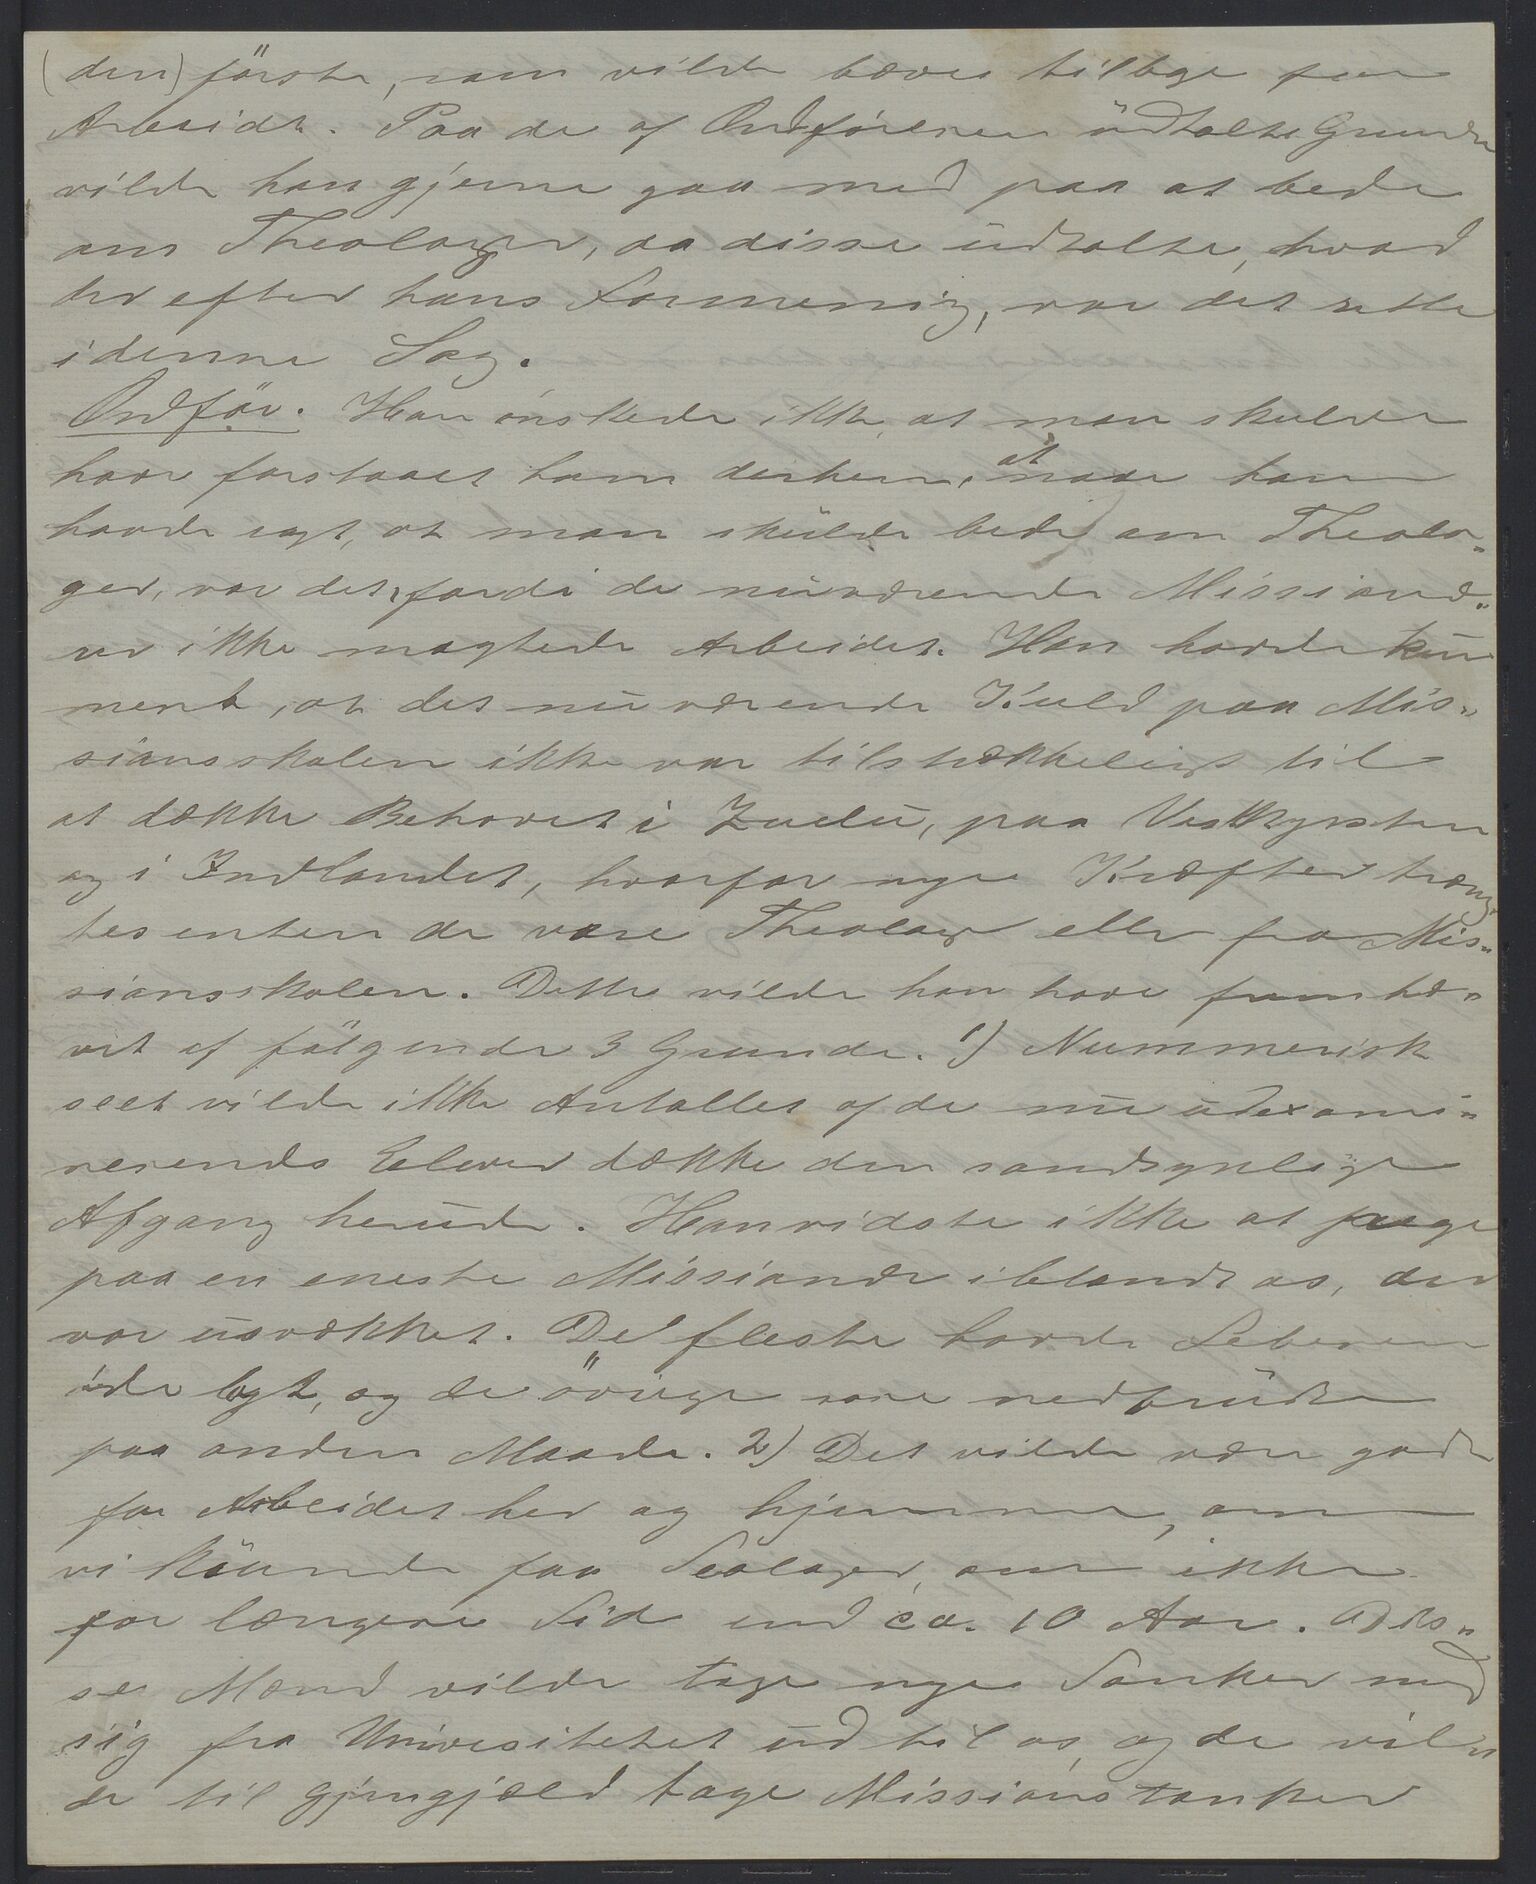 (den) förste, som vilde bæve tilbage for
Arbeidet. Paa de af Ordföreren udtalte Grunde
vilde han gjerne gaa med paa at bede
om Theologer, da disse udtalte, hvad
der efter hans Formening, var det rette
i denne Sag.
Ordför. Han önskede ikke, at man skulde
have forstaaet ham derhen, at naar han
havde sagt, at man skulde bede om Theolo-
ger, var det, fordi de nuværende Missionæ-
rer ikke magtede Arbeidet. Han havde kun
ment, at det nuværende Kuld paa Mis-
sionsskolen ikke var tilstrækkeligt til
at dække Behovet i Zulu, paa Vestkysten
og i Indlandet, hvorfor nye Kræfter træng-
tes enten de vare Theologer eller fra Mis-
sionsskolen. Dette vilde han have fremhæ-
vet af fölgende 3 Grunde. 1) Nummerisk
seet vilde ikke Antallet af de nu udexami-
nerende Elever dække den sandsynlige
Afgang herude. Han vidste ikke at pege
paa en eneste Missionær iblandt os, der
var usvækket. De fleste havde Feberen
ödelagt, og de övrige vare nedbrudte
paa anden Maade. 2) Det vilde være godt
for Arbeidet her og hjemme, om
vi kunde faa Teologer, om ikke
for længere Tid end ca. 10 Aar. Dis-
se Mænd vilde tage nye Tanker med
sig fra Universitetet ud til os, og de vil-
de til gjengjæld tage Missionstanker